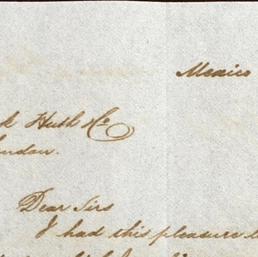 Mexico
k Huth & Co
ondon.
Dear Sirs
I had this pleasure